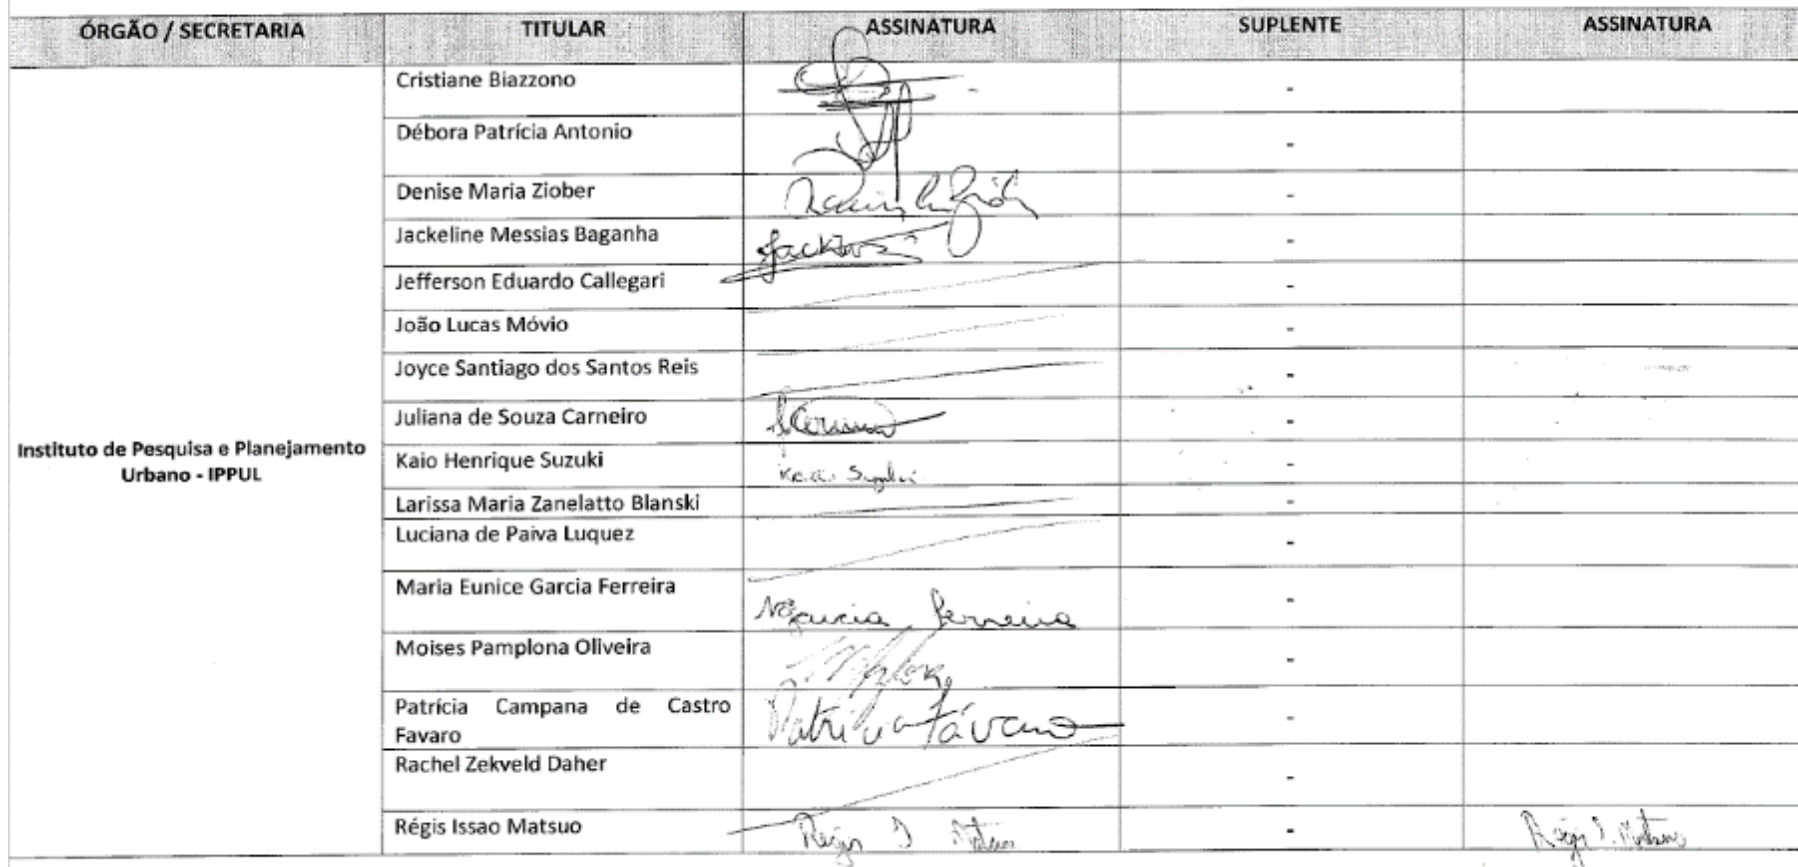 ÓRGÃO / SECRETARIA TITULAR ASSINATURA SUPLENTE ASSINATURA
Cristiane Biazzono -
Débora Patrícia Antonio -
Denise Maria Ziober -
Jackeline Messias Baganha -
Jefferson Eduardo Callegari -
João Lucas Móvio -
Joyce Santiago dos Santos Reis -
Juliana de Souza Carneiro -
Instituto de Pesquisa e Planejamento
Urbano - IPPUL
Kaio Henrique Suzuki Kaio Suzuki -
Larissa Maria Zanelatto Blanski -
Luciana de Paiva Luquez -
Maria Eunice Garcia Ferreira Garcia Ferreira -
Moises Pamplona Oliveira -
Patrícia Campana de Castro
Favaro Patricia Fávaro -
Rachel Zekveld Daher -
Régis Issao Matsuo Regis I Matsuo - Regis I. Matsuo